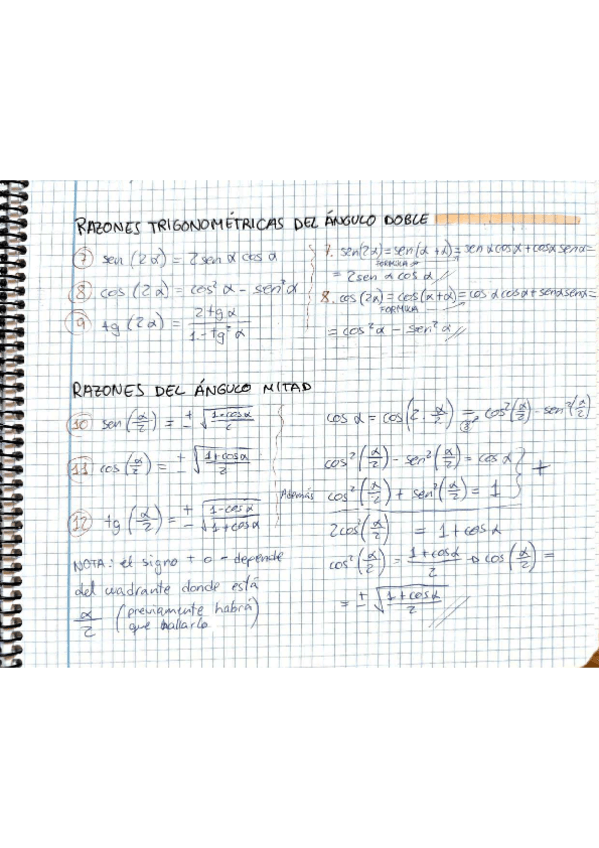 RAZONES TRIGONOMÉTRICAS DEL ÁNGULO DOBLE
7 sen (2α) = 2 sen α cos α
8 cos (2α) = cos² α - sen² α
9 tg (2α) = 2 tg α / 1 - tg² α
7. sen(2α) = sen(α + α) = sen α cos α + cos α sen α =
FORMULA
= 2 sen α cos α //
8. cos(2α) = cos(α+α) = cos α cos α + sen α sen α =
FORMULA
= cos² α - sen² α //
RAZONES DEL ÁNGULO MITAD
10 sen (α/2) = ± √(1-cos α / 2)
11 cos (α/2) = ± √(1+cos α / 2)
12 tg (α/2) = ± √(1-cos α / 1+cos α)
NOTA: el signo + o - depende
del cuadrante donde está
α/2 (previamente habrá
que hallarlo
cos α = cos (2 · α/2) = cos² (α/2) - sen² (α/2)
8
cos² (α/2) - sen² (α/2) = cos α
Además cos² (α/2) + sen² (α/2) = 1 } +
2cos² (α/2) = 1 + cos α
cos² (α/2) = 1 + cos α / 2 → cos (α/2) =
= ± √(1 + cos α / 2) //